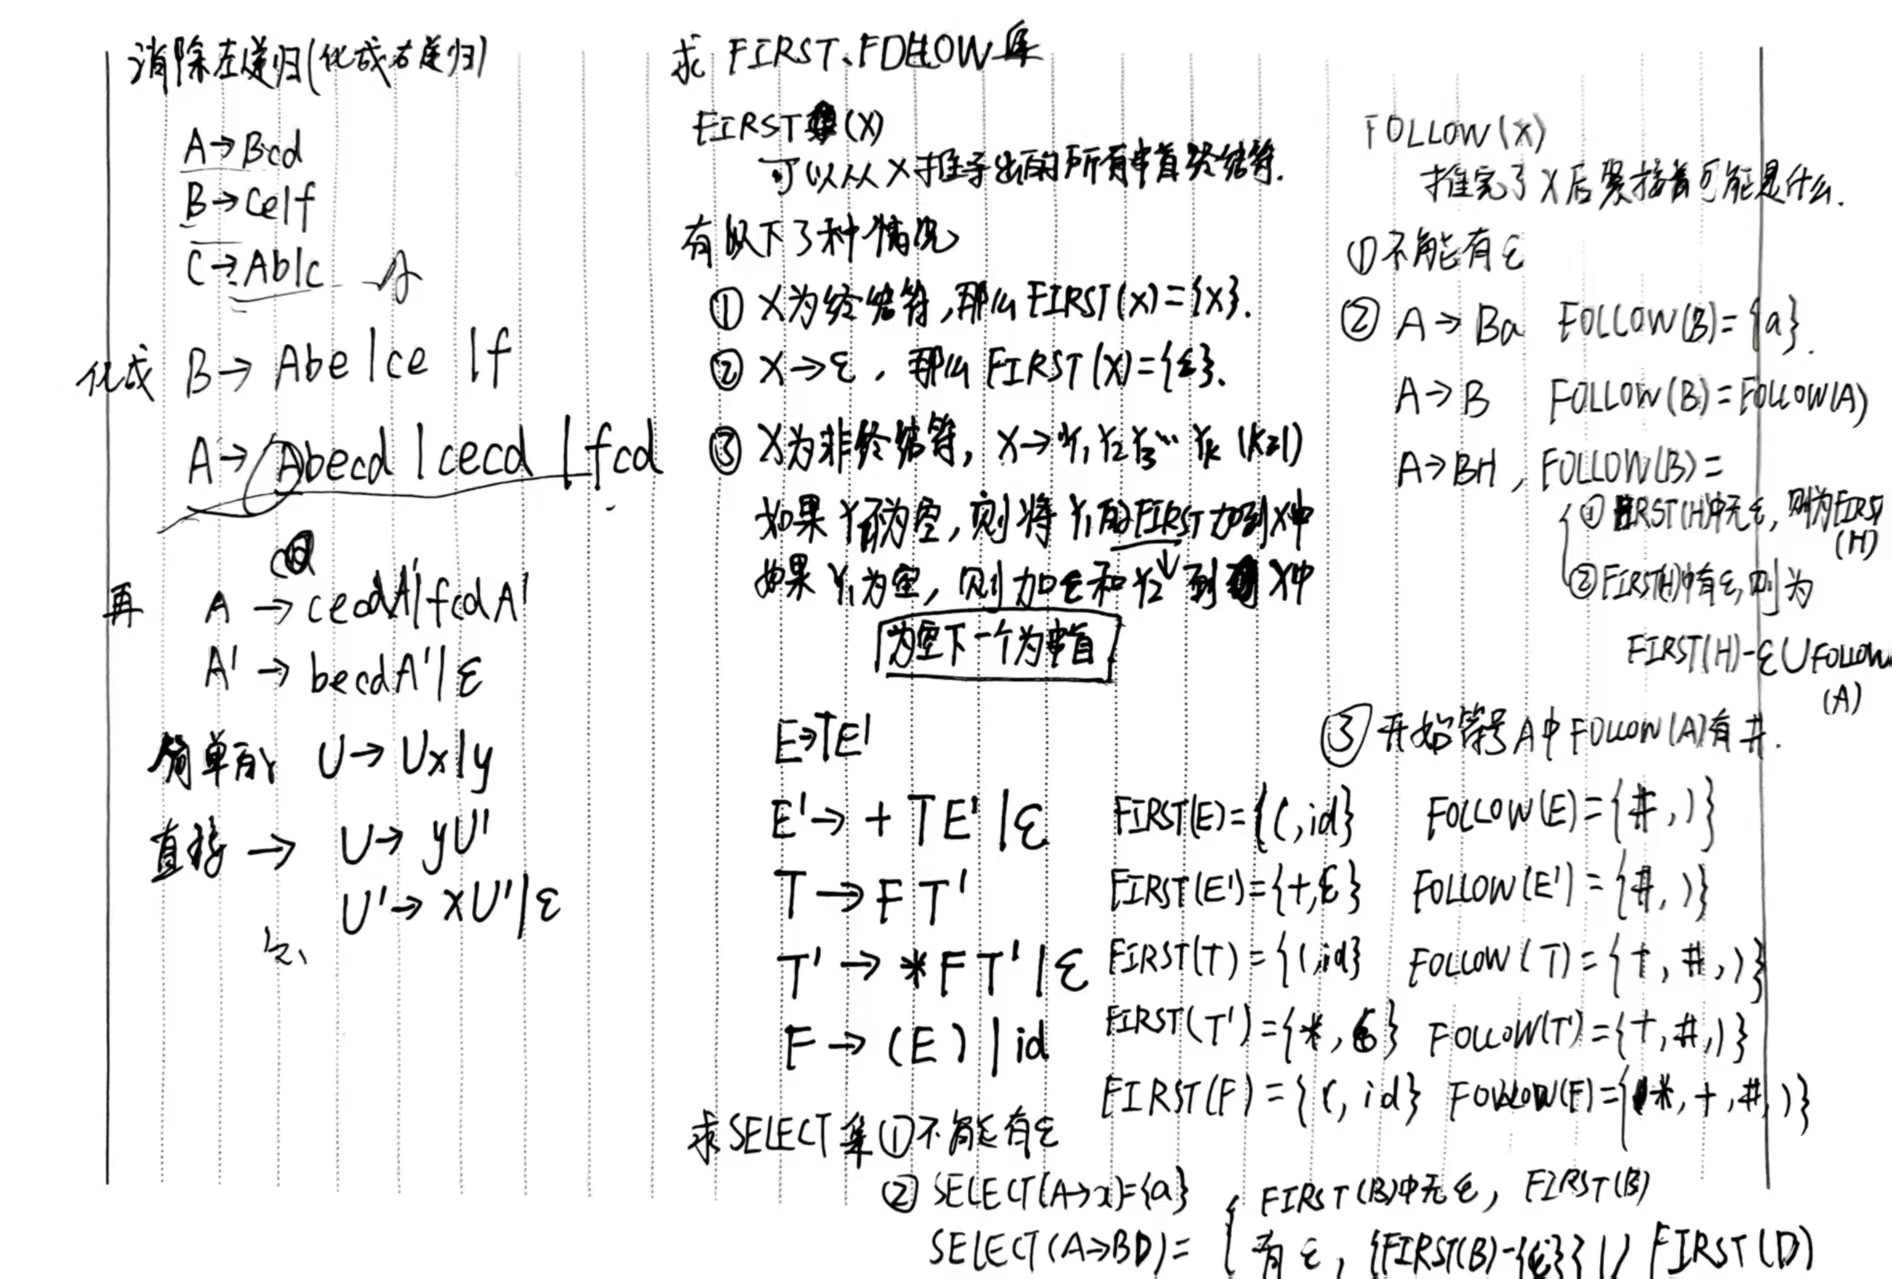 消除左递归(化成右递归)
A→Bcd
B→Ce|f
C→Ab|c
化成 B→ Abe|ce |f
A→ Abecd | cecd | fcd
再 A → cecdA'|fcdA'
A' → becdA'|ε
简单的 U→ Ux|y
直接 → U→ yU'
U'→ xU'|ε
求 FIRST、FOLLOW集
FIRST (X)
可以从X推导出的所有串首终结符.
有以下3种情况
① X为终结符,那么FIRST(x)={x}.
② X→ε, 那么FIRST(X)={ε}.
③ X为非终结符, X→Y₁Y₂Y₃…Yk (k≥1)
如果Y₁不为空,则将Y₁的FIRST加到X中
如果Y₁为空,则加ε和Y₂到X中
为空下一个为串首
E→TE'
E'→ + TE'|ε
T→FT'
T'→ *FT'|ε
F→ (E) | id
FOLLOW(X)
推完了X后紧接着可能是什么.
①不能有ε
② A→Ba FOLLOW(B)={a}.
A→B FOLLOW(B)=FOLLOW(A)
A→BH, FOLLOW(B)=
①FIRST(H)中无ε,则为FIRST
(H)
②FIRST(H)中有ε,则为
FIRST(H)-ε∪FOLLOW
(A)
③ 开始符号A中FOLLOW(A)有#.
FIRST(E)={(,id} FOLLOW(E)={#,)}
FIRST(E')={+,ε} FOLLOW(E')={#,)}
FIRST(T)={(,id} FOLLOW(T)={+,#,)}
FIRST(T')={*,ε} FOLLOW(T')={+,#,)}
FIRST(F)={(,id} FOLLOW(F)={*,+,#,)}
求SELECT集①不能有ε
② SELECT(A→x)={a}
SELECT(A→BD)=
FIRST(B)中无ε, FIRST(B)
有ε, {FIRST(B)-{ε}}∪FIRST(D)